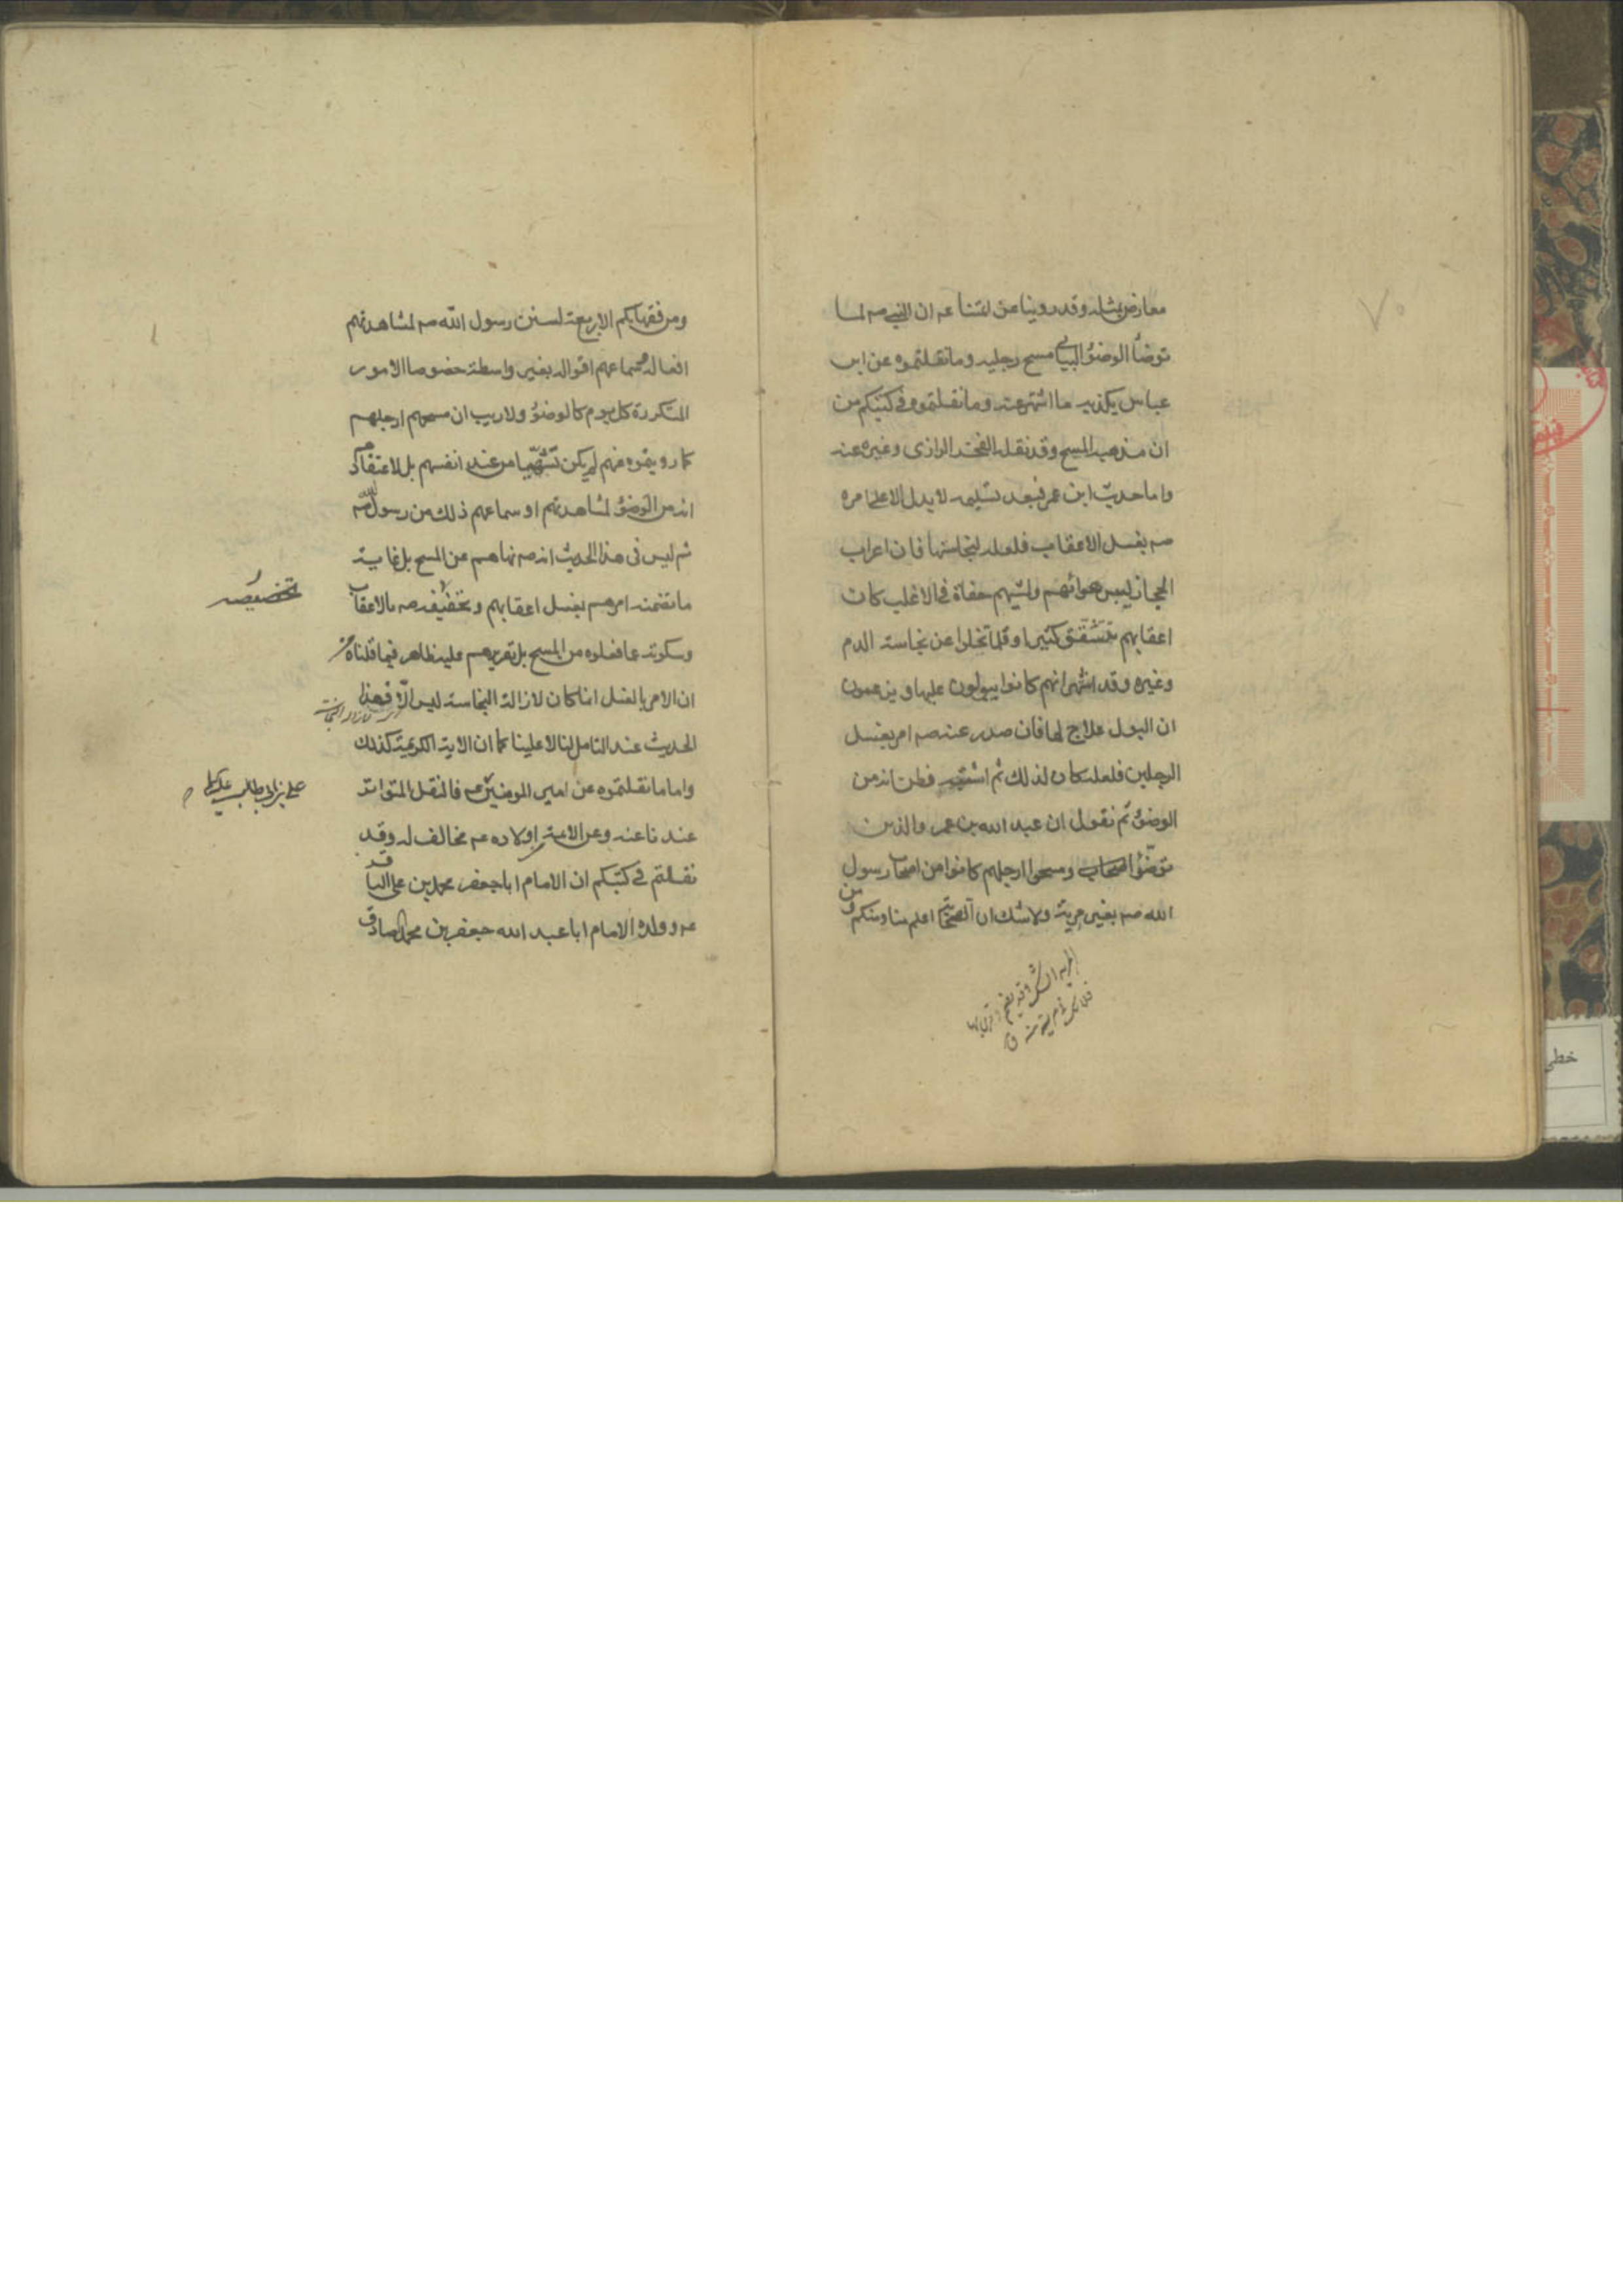 ٧٠
معارض بمثله وقد روينا عن ائمتنا عم ان النبي صم لما
توضأ الوضوُ البياني مسح رجليه وما نقلتموه عن ابن
عباس يكذبه ما اشتهر عنه وما نقلتموه في كتبكم من
ان مذهبه المسح وقد نقله الفخر الرازى وغيره عنه
واما حديث ابن عمر فبعد تسليمه لا يدل الا على امره
صم بغسل الاعقاب فلعله لنجاستها فان اعراب
الحجاز ليبس هوائهم ومشيهم حفاة في الاغلب كانت
اعقابهم تتشقق كثيرا وقلما تخلوا عن نجاسة الدم
وغيره وقد اشتهر انهم كانوا يبولون عليها ويزعمون
ان البول علاج لها فان صدر عنه صم امر بغسل
الرجلين فلعله كان لذلك ثم اشتبه فظن انه من
الوضوُ ثم نقول ان عبد الله بن عمر والذين
توضؤا معه ومسحوا ارجلهم كانوا من اصحاب رسول
الله صم بغير مرية ولا شك ان الصحابة اعلم منا ومنكم ومن
المرية الشك وقد تضم
فلا تك في مرية منه ق
ومن فقهائكم الاربعة لسنن رسول الله صم لمشاهدتهم
افعاله وسماعهم اقواله بغير واسطة خصوصا الامور
المتكررة كل يوم كالوضوُ ولا ريب ان مسحهم ارجلهم
كما رويتموه عنهم لم يكن تشهّيا من عند انفسهم بل لاعتقادهم
انه من الوضوُ لمشاهدتهم او سماعهم ذلك من رسول الله صم
ثم ليس في هذا الحديث انه صم نهاهم عن المسح بل غاية
ما تضمنه امرهم بغسل اعقابهم وتخصيصه صم بالاعقاب
تخصيصه
وسكوته عما فعلوه من المسح بل تقريرهم عليه ظاهر فيما قلناه من
ان الامر بالغسل انما كان لازالة النجاسة ليس الّا فهذا
لازالة النجاسة
الحديث عند التامل لنا لا علينا كما ان الاية الكريمة كذلك
واما ما نقلتموه عن امير المومنين عم فالنقل المتواتر
علي بن ابي طالب عليه السلام
عندنا عنه وعن الائمة اولاده عم مخالف له وقد
نقلتم في كتبكم ان الامام ابا جعفر محمد بن علي الباقر
عم وولده الامام ابا عبد الله جعفر بن محمد الصادق
خطي